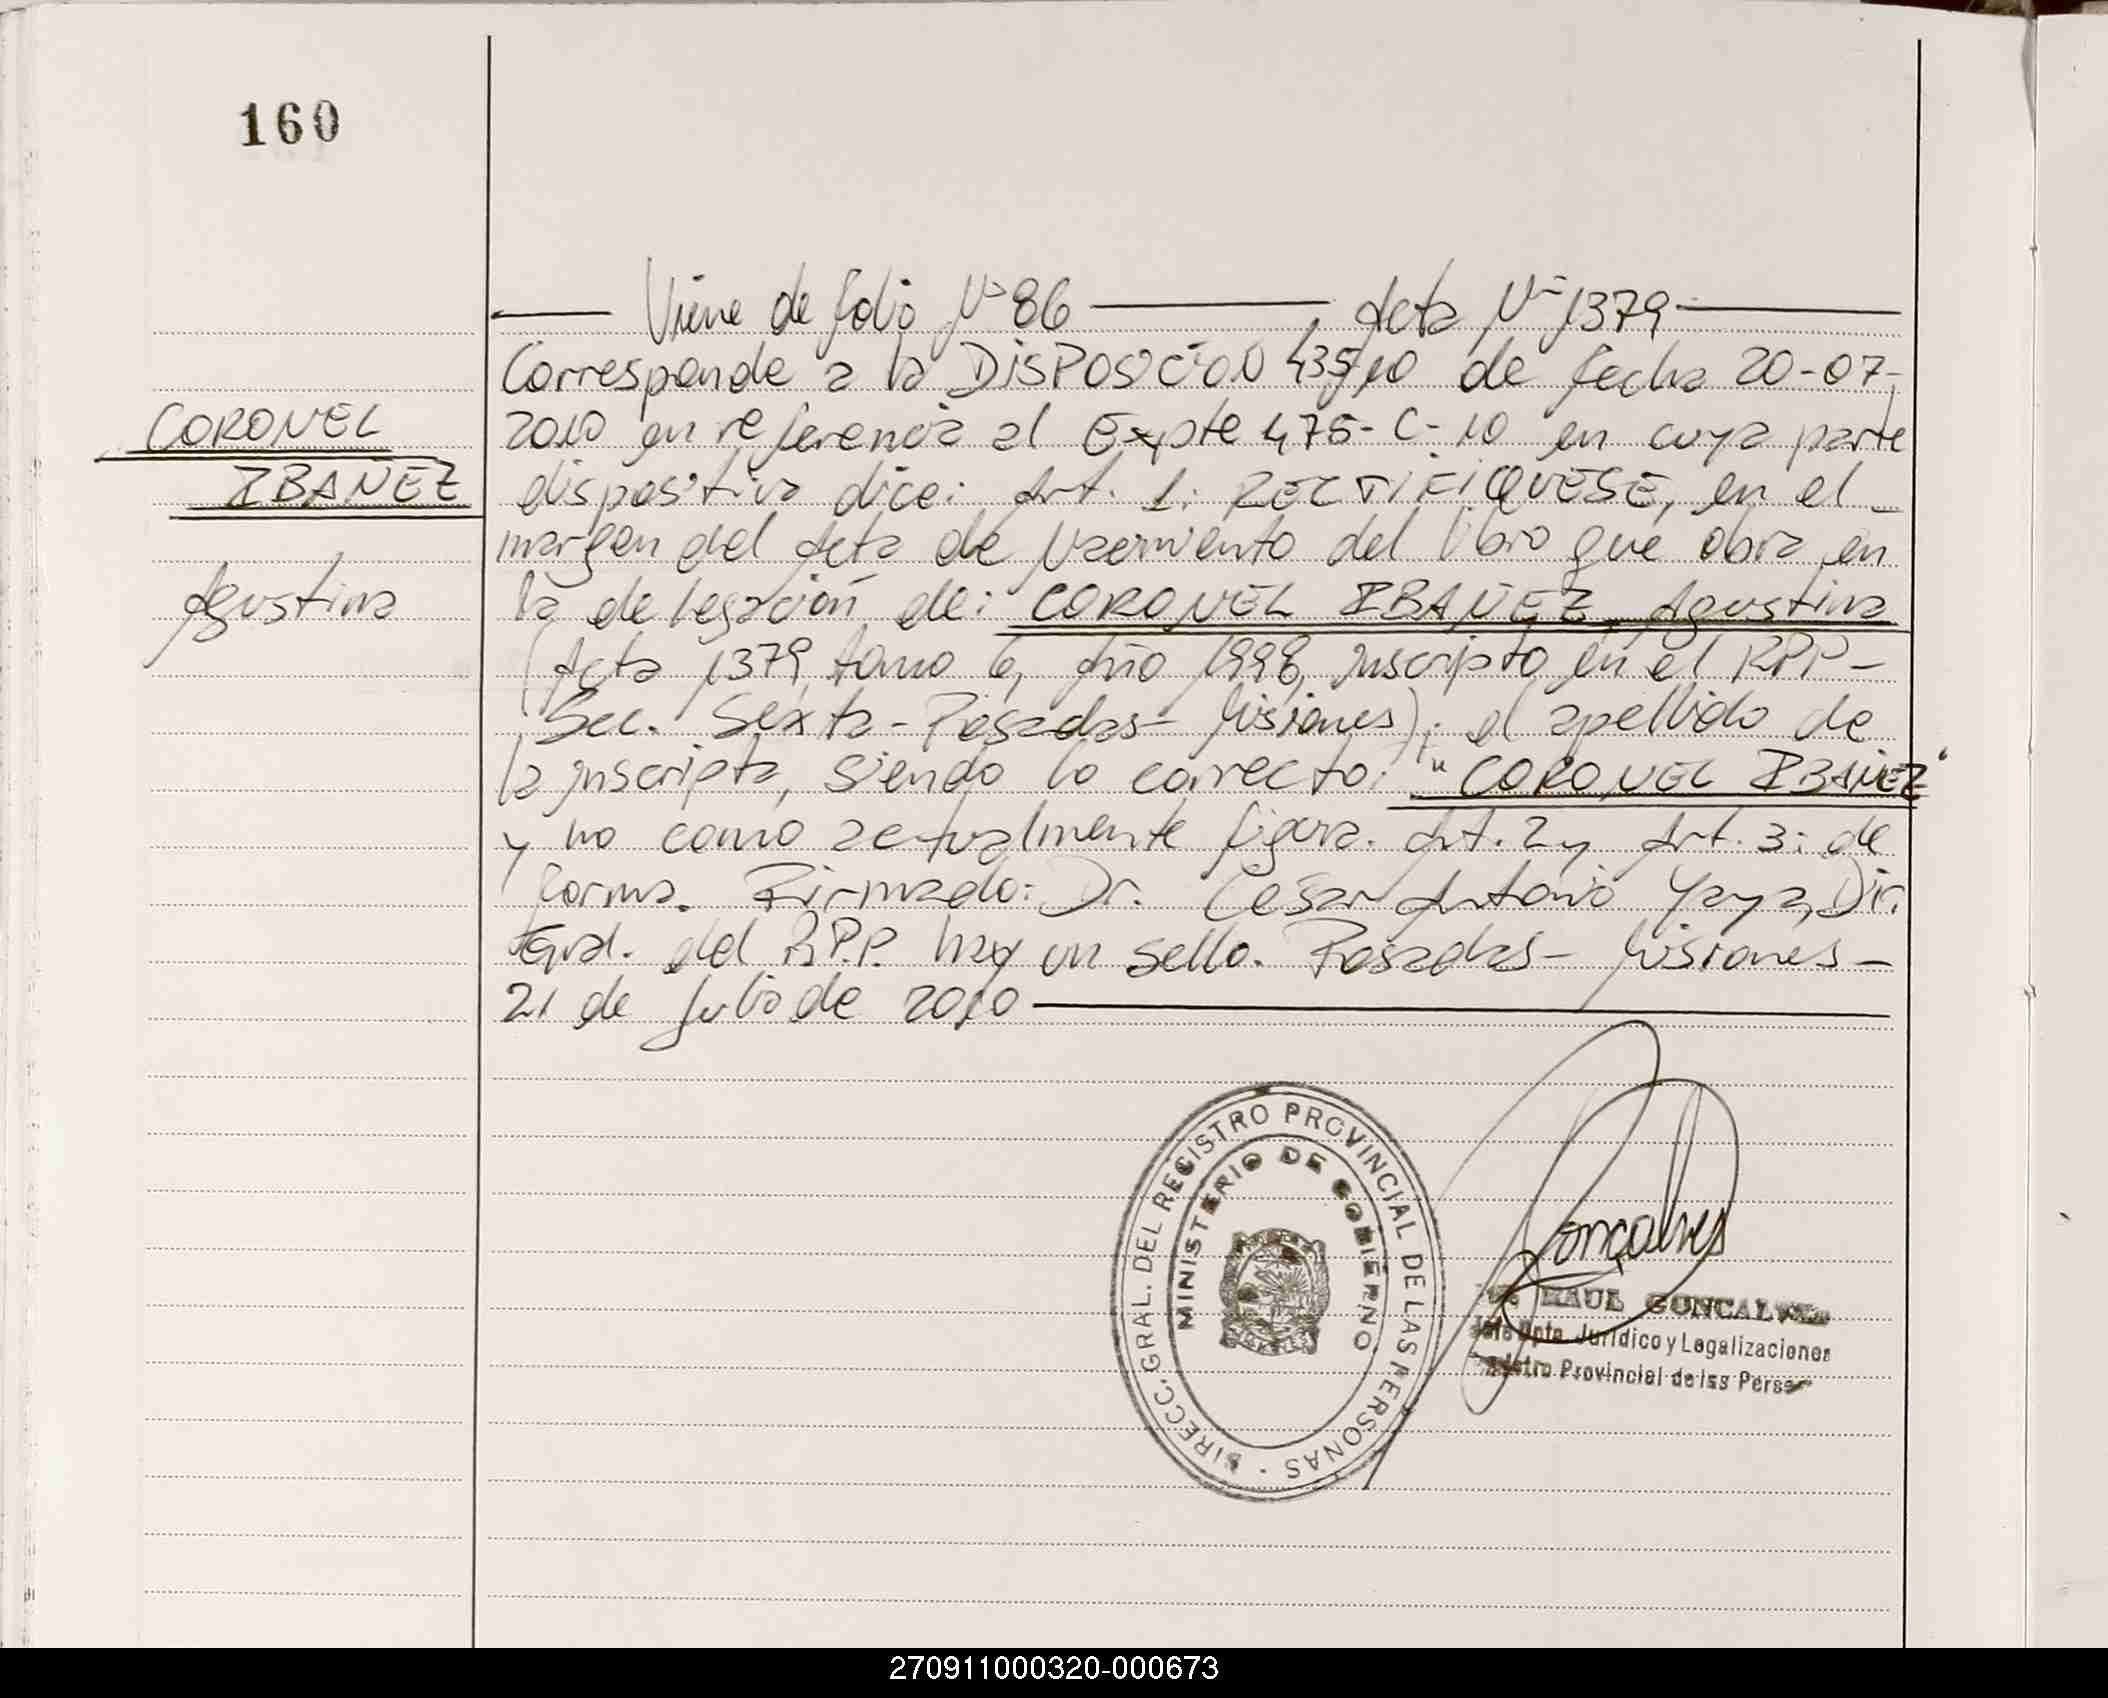 160
Viene de folio Nº 86 Acta Nº 1379
Corresponde a la DISPOSICION 435/10 de fecha 20-07-
CORONEL
2010 en referencia al Expte 475-C-10 en cuya parte
IBAÑEZ
dispositiva dice: Art. 1: RECTIFIQUESE, en el
margen del Acta de Nacimiento del libro que obra en
Agustina
la delegación de: CORONEL IBAÑEZ, Agustina
(Acta 1379, tomo 6, Año 1998, inscripto en el RPP-
Sec. Sexta-Posadas-Misiones); el apellido de
la inscripta, siendo lo correcto: "CORONEL IBAÑEZ"
y no como actualmente figura. Art. 2 y Art. 3: de
forma. Firmado: Dr. Cesar Antonio Yaya, Dir.
Gral. del R.P.P. hay un sello. Posadas-Misiones-
21 de Julio de 2010
DIRECC. GRAL. DEL REGISTRO PROVINCIAL DE LAS PERSONAS
MINISTERIO DE GOBIERNO
Goncalves
RAUL GONCALVES
Jefe Dpto. Jurídico y Legalizaciones
Registro Provincial de las Person
270911000320-000673